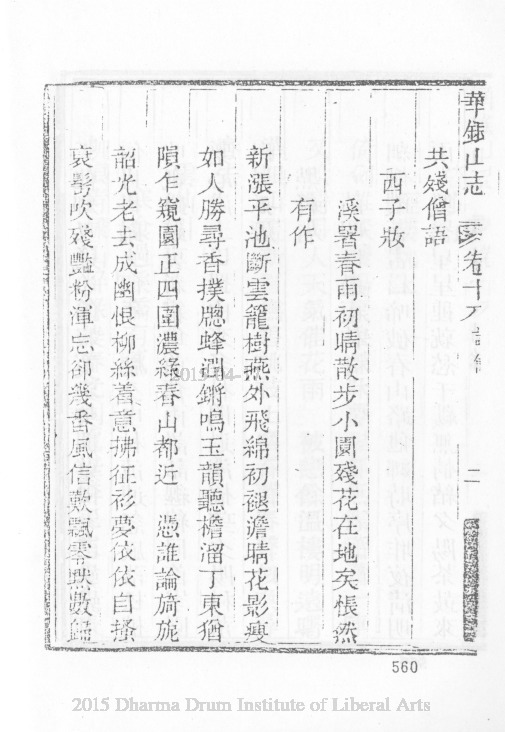 華銀山志 卷十九 詩餘 二
共殘僧語
西子妝
溪署春雨初晴散步小園殘花在地矣悵然
有作
新漲平池斷雲籠樹燕外飛綿初褪澹晴花影瘦
如人勝尋香撲牕蜂潤鏘鳴玉韻聽檐溜丁東猶
隕乍窺園正四圍濃綠春山都近 憑誰論旖旎
韶光老去成幽恨柳絲着意拂征衫夢依依自搔
衰髩吹殘豔粉渾忘卻幾番風信歎飄零點數歸
560
2015-04-
2015 Dharma Drum Institute of Liberal Arts